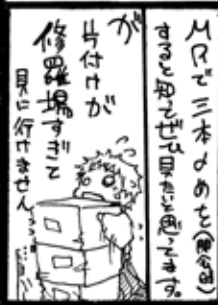 MRで三本〆めを(閉会の)
すると知ってぜひ見たいと思ってます。
が
片付けが
修羅場すぎて
見に行けません